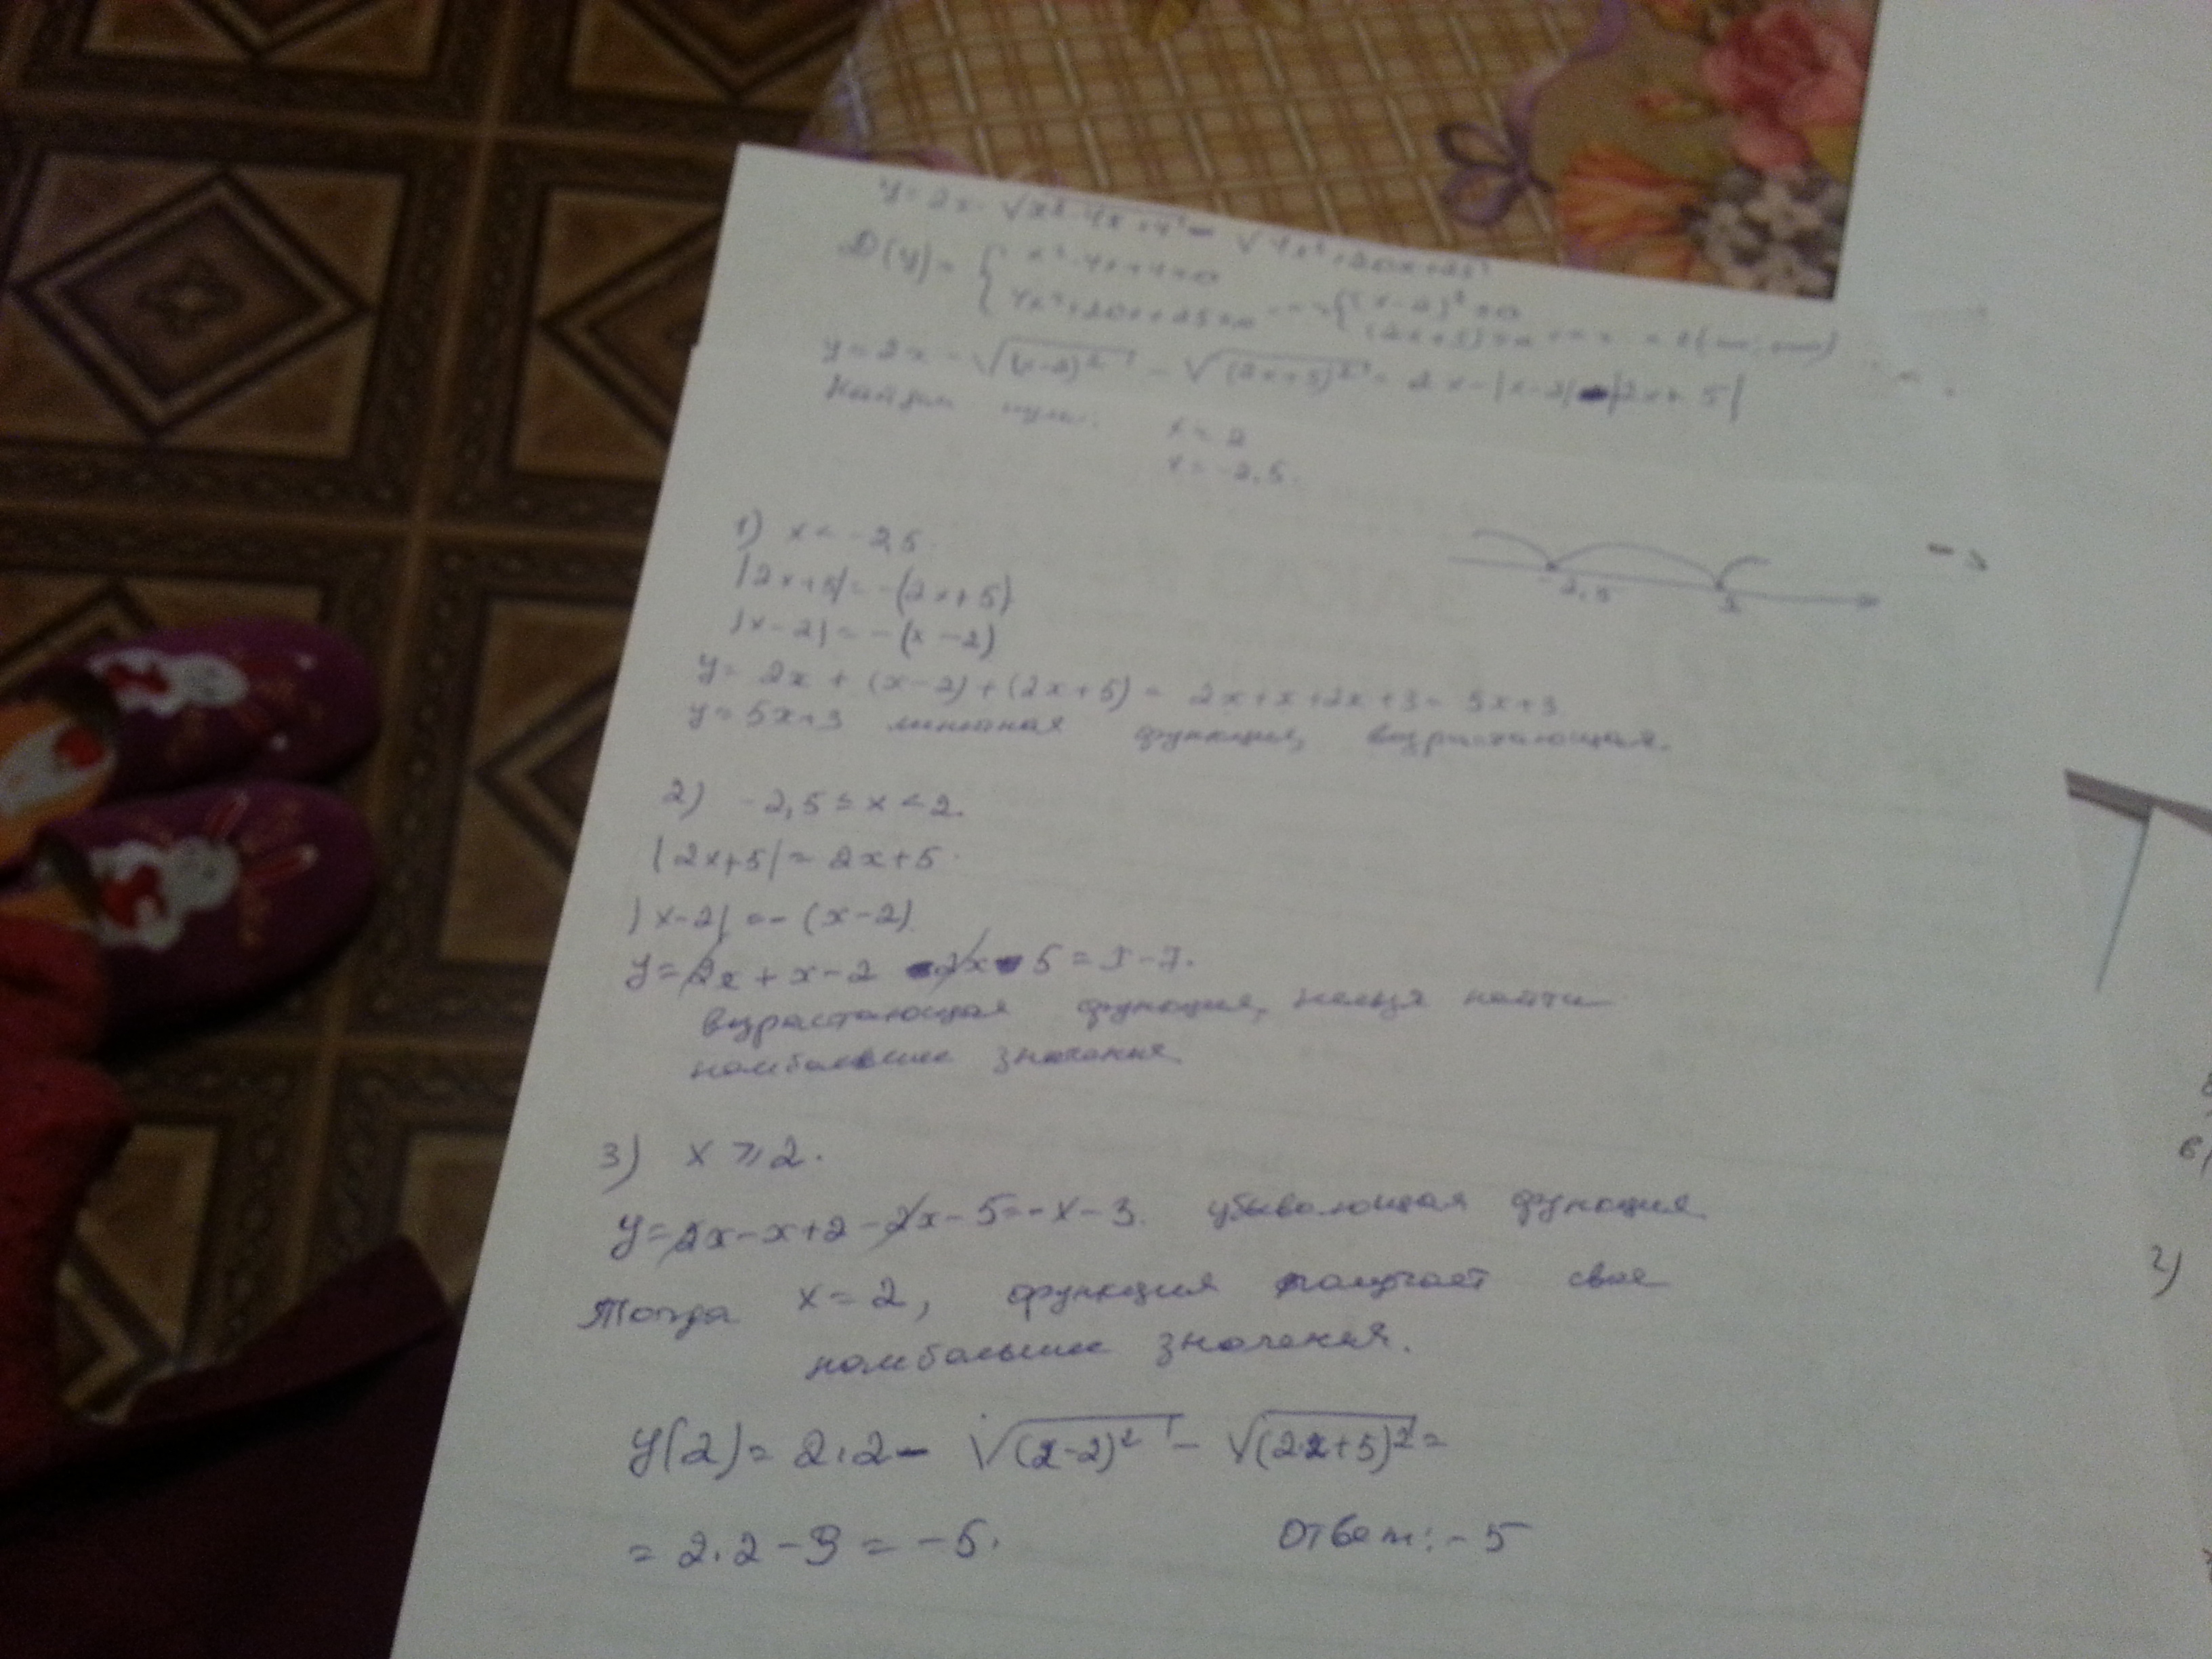 y = 2x - √x² - 4x + 4 - √4x² + 20x + 25
D(y) = { x² - 4x + 4 ≥ 0
4x² + 20x + 25 ≥ 0 { (x-2)² ≥ 0
(2x+5)² ≥ 0
y = 2x - √(x-2)² - √(2x+5)² = 2x - |x-2| - |2x+5|
Найдем нули: x = 2
x = -2,5.
1) x < -2,5.
-2,5 2
|2x+5| = -(2x+5)
|x-2| = -(x-2)
y = 2x + (x-2) + (2x+5) = 2x + x + 2x + 3 = 5x + 3
y = 5x+3 линейная функция, возрастающая.
2) -2,5 ≤ x < 2.
|2x+5| = 2x+5.
|x-2| = -(x-2)
y = 2x + x - 2 - 2x - 5 = x - 7.
возрастающая функция, нельзя найти
наибольшее значения
3) x ≥ 2.
y = 2x - x + 2 - 2x - 5 = -x - 3. убывающая функция
Тогда x = 2, функция получает свое
наибольшие значения.
y(2) = 2·2 - √(2-2)² - √(2·2+5)² =
= 2·2 - 9 = -5. Ответ: -5
в)
2)